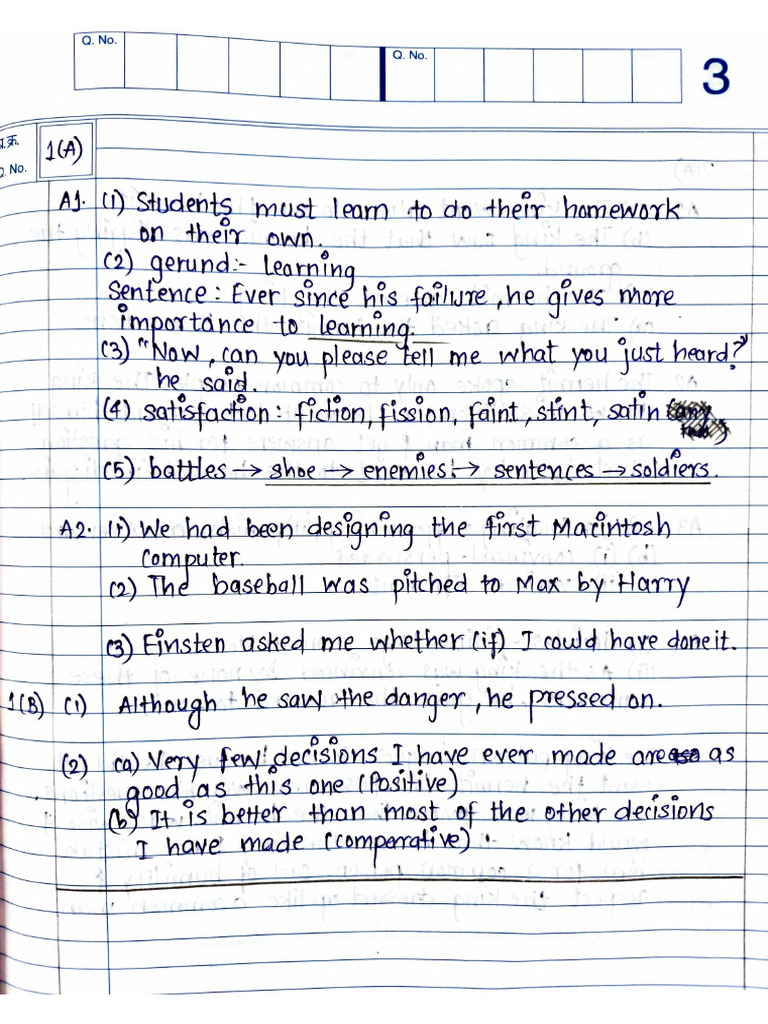 Q. No.
Q. No.
3
प्र.क्र.
Q. No.
1(A)
A1. (1) Students must learn to do their homework
on their own.
(2) gerund:- Learning
Sentence: Ever since his failure, he gives more
importance to learning.
(3) "Now, can you please tell me what you just heard?"
he said.
(4) satisfaction: fiction, fission, faint, stint, satin
(5) battles → shoe → enemies → sentences → soldiers.
A2. (1) We had been designing the first Macintosh
computer.
(2) The baseball was pitched to Max by Harry
(3) Einsten asked me whether (if) I could have done it.
1(B) (1) Although he saw the danger, he pressed on.
(2) (a) Very few decisions I have ever made are as
good as this one (Positive)
(b) It is better than most of the other decisions
I have made (comparative).